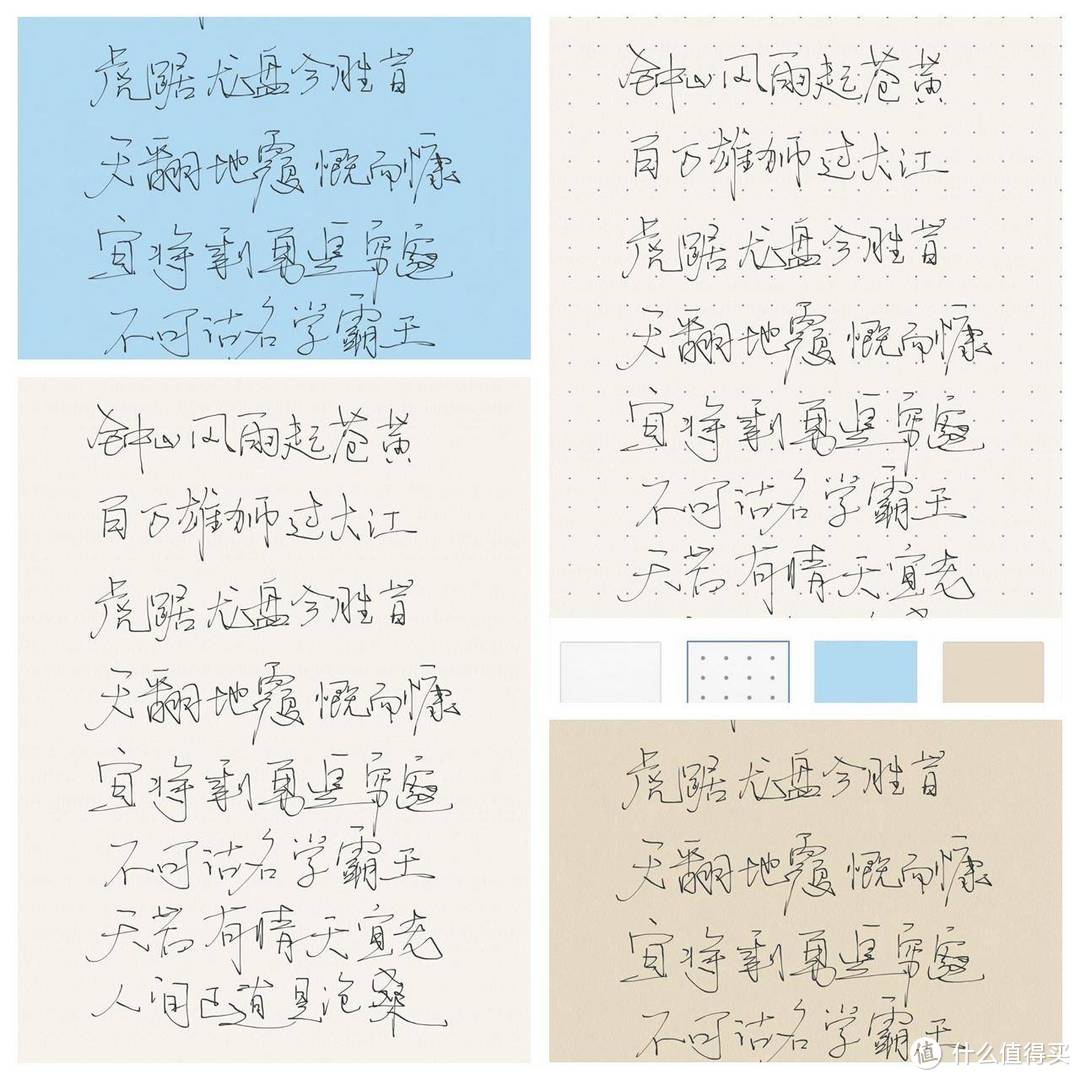 虎踞龙盘今胜昔
天翻地覆慨而慷
宜将剩勇追穷寇
不可沽名学霸王
钟山风雨起苍黄
百万雄狮过大江
虎踞龙盘今胜昔
天翻地覆慨而慷
宜将剩勇追穷寇
不可沽名学霸王
天若有情天宜老
人间正道是沧桑
钟山风雨起苍黄
百万雄狮过大江
虎踞龙盘今胜昔
天翻地覆慨而慷
宜将剩勇追穷寇
不可沽名学霸王
天若有情天宜老
虎踞龙盘今胜昔
天翻地覆慨而慷
宜将剩勇追穷寇
不可沽名学霸王
值 什么值得买